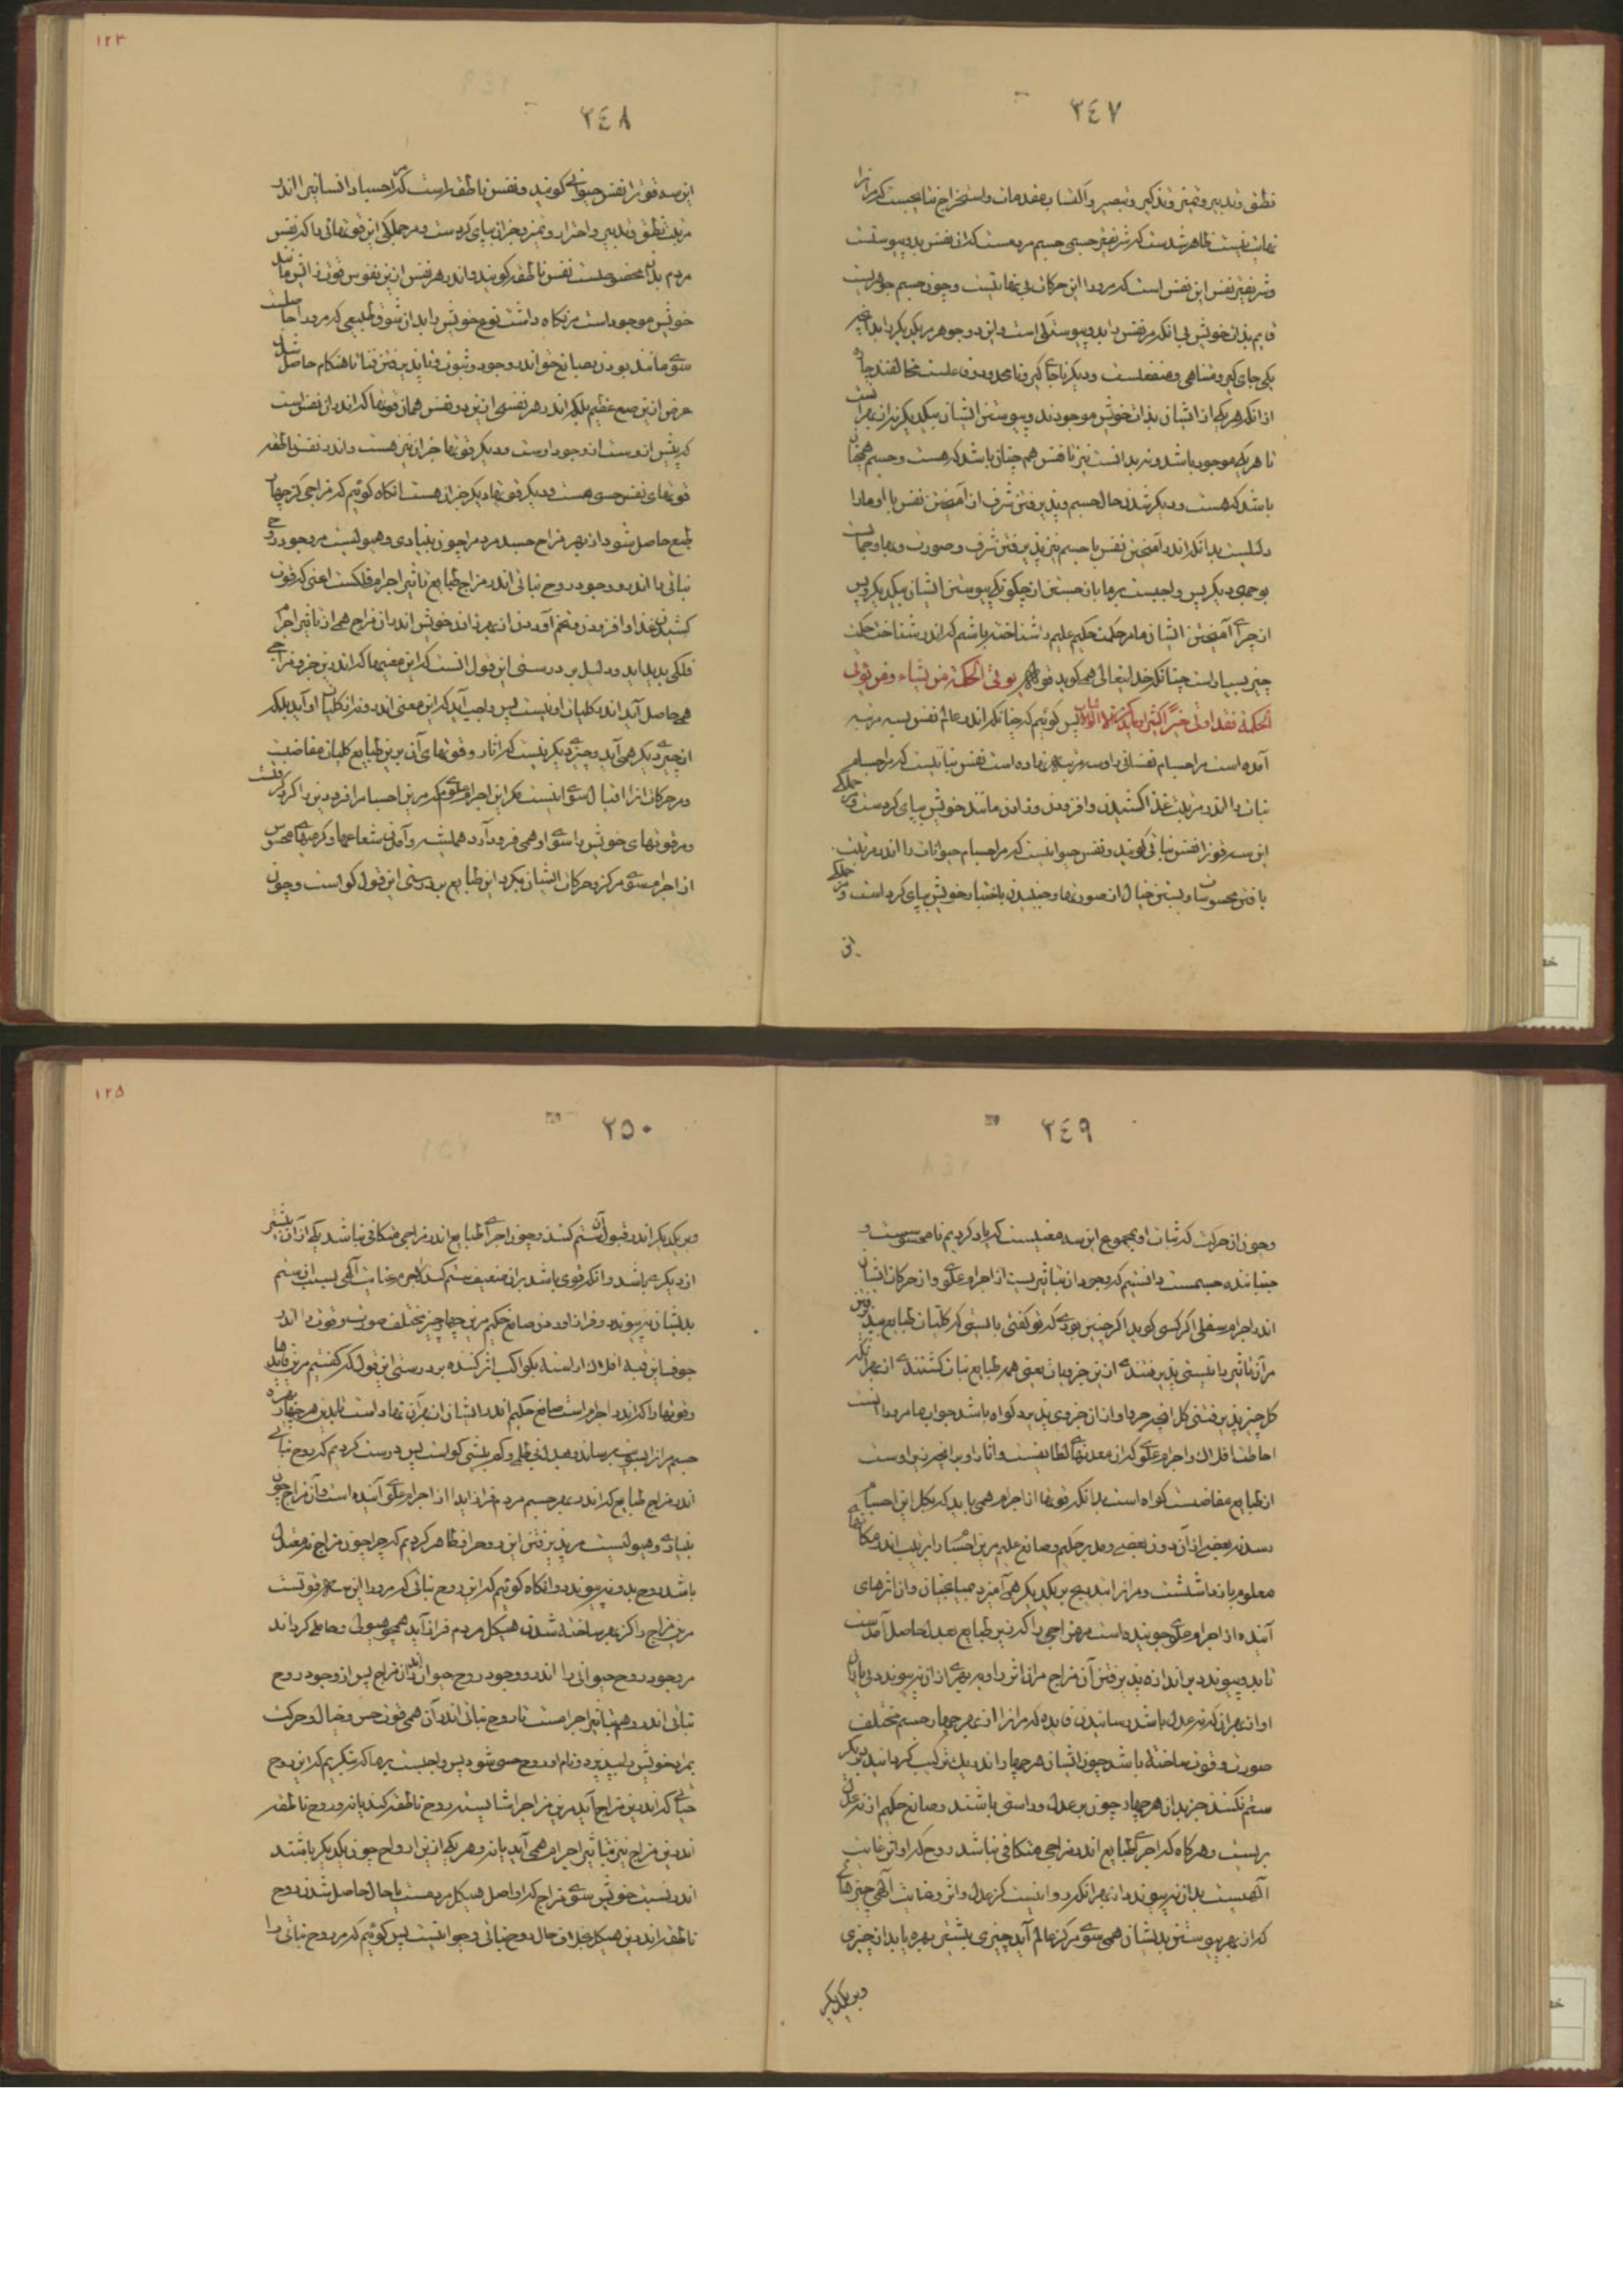 ٣٤٧
نطق و تدبیر و تمیز و تذکیر و تبصیر و اکتساب مقدمات و استخراج نتایجست که مر آنرا
نهایت نیست ظاهر شدست که شریفترین جسمی جسم مردمست که این نفس بدو پیوستست
و شریفترین نفس این نفس است که مرو را این حرکات بی نهایتست و چون جسم جوهریست
قایم بذات خویش بی آنکه مر نفس را بدو پیوستگی است و این دو جوهر مر یکدیگر را
یکی جای گیر و متناهی و منفعلست و دیگر ناجای گیر و نامحدود و فاعلست مخالفند
از آنکه هر یکی از ایشان بذات خویش موجودند و پیوستن ایشان بیکدیگر نه از بهر آنست
تا هر یکی موجود باشد و نه بدانست نیز تا نفس هم چنان باشد که هست و جسم همچنان
باشد که هست و دیگر شدن حال جسم و پذیرفتن شرف از آمیختن نفس با او ما را
دلیلست بدانکه اندر آمیختن نفس با جسم نیز پذیرفتن شرف و صورت و بها و جمالست
بوجهی دیگر پس واجبست بر ما باز جستن از چگونگی پیوستن ایشان بیکدیگر و پس
از چرائی آمیختن ایشان ما مر حکمت حکیم علیم را شناخته باشیم که اندر شناخت حکمت
چیز بسیار است چنانکه خدایتعالی همی گوید قوله یؤتی الحکمة من یشاء و من یؤتی
الحکمة فقد اوتی خیرا کثیرا و ما یذکر الا اولوا الالباب پس گوئیم که چنانکه اندر عالم نفس بسه مرتبه
آمده است مر اجسام نفسانی را و سه مرتبه نهاده است نفس نباتیست که مر اجسام
نبات را اندر مرتبت غذا کشیدن و افزودن و زادن مانند خویش بپای کردست و مر جملگی
این سه قوة را نفس نباتی گویند و نفس حیوانیست که مر اجسام حیوانات را اندر مرتبت
یافتن محسوسات و بستن خیال از صورتها و جنبیدن باختیار خویش بپای کرد است و مر جملگی
این
١٢٣
٣٤٨
این سه قوة را نفس حیوانی گویند و نفس ناطقه است که مر اجساد انسانیرا اندر
مرتبت نطق و تدبیر و احتراز و تمیز و جز آن بپای کردست و مر جملگی این قوتهائی را که نفس
مردم بدان مخصوصست نفس ناطقه گویند و اندر هر نفس ازین نفوس قوت زایش مانند
خویش موجود است مر نگاه داشت نوع خویش را بدان شوق طبیعی که مرو را حاصلست
سوی مانند بودن بصانع خویش اندر وجود و ثبوت و ناپذیرفتن فنا تا هنگام حاصل شدن
غرض ازین صنع عظیم بلکه اندر هر نفسی ازین دو نفس همان قوتها که اندر آن نفس است
که پیش ازوست از وجود اوست و دیگر قوتها جز آن نیز هست و اندر نفس ناطقه
قوتهای نفس حسی هست و دیگر قوتها دیگر جز آن هست آنگاه گوئیم که مزاجی کز چهار
طبع حاصل شود از بهر مزاج جسد مردم را چون بنیادی و هیولیست مر وجود روح
نباتی را اندرو وجود روح نباتی اندر مزاج طبایع تاثیر اجرام فلکست اعنی که قوت
کشیدن غذا و افزودن و تخم آوردن از بهر زادن خویش اندر آن مزاج همی از تاثیر اجرام
فلکی پدید آید و دلیل بر درستی این قول آنست که این معنیها که اندرین جزو مزاجی
همی حاصل آید اندر کلیات او نیست پس واجب آید که این معنی اندرو نه از کلیات او آید بلکه
از چیزی دیگر همی آید و چیزی دیگر نیست که آثار و قوتهای آن برین طبایع کلیات مفاضیست
و مر حرکات آنرا اقبال سوی اینست مگر این اجرام علوی که مرین اجسام را فرودین را گرد گرفتست
و مر قوتهای خویش را سوی او همی فرود آرد همیشه و آمدن شعاعها و گرمیهای محسوس
از اجرام سوی مرکز و حرکات ایشان بگرد این طبایع بر درستی این قول گواست و چون
٣٤٩
و چون از حرکت که ثبات او بمجموع این سه معنیست که یاد کردیم نامحسوسست و
جنباننده جسمست دانستیم که وجود آن بتاثیریست از اجرام علوی و از حرکات ایشان
اندر اجرام سفلی اگر کسی گوید اگر چنین بودی که تو گفتی بایستی که کلیات طبایع پذیرفتن
مر آن تاثیر را بیستی پذیرفتندی ازین جزویات یعنی همه طبایع نبات گشتندی از بهر آنکه
کل چیز پذیرفتنی کل آنچه جزو او از آن جزوی پذیرد گواه باشد جواب ما مرو را آنست
احاطت افلاک و اجرام علوی که از معدنهای لطایفست و آثار او بدانچه زیر اوست
از طبایع مفاضست گواه است بدانکه قوتها از اجرام همی باید که بکل این اجسام
رسد نه بعضی از آن دون بعضی و مدبر حکیم و صانع علیم مرین اجسام را بترتیب اندر مکانهای
معلوم بازداشتست و مر آنرا بتدریج بر یکدیگر همی آمیزد بمیانجیان و از اثرهای
آینده از اجرام علوی جوینده است مر هر مزاجی را که زین طبایع بعدل حاصل آمدست
تا بدو پیوندد بر اندازه پذیرفتن آن مزاج مر آن اثر را و بهری از آن نپیوندد بی پایان
او از بهر آن که نه عدل باشد رسانیدن فایده که مر آنرا از بهر چهار جسم مختلف
صورت و قوت ساخته باشد چون ایشان هر چهار اندر یک ترکیب گرد آیند بر یکدیگر
ستم نکنند جز بدان هر چهار چون بر عدل و راستی باشند و صانع حکیم از نه عدل
بریست و هرگاه که اجزای طبایع اندر مزاجی متکافی نباشد روح که او اثر عنایت
الهیست بدان نپیوندد از بهر آنکه روا نیست کز عدل و اثر و عنایت الهی چیزهائی
که از بهر پیوستن بدیشان همی سوی مرکز عالم آید چیزی بیشتر بهره یابد از چیزی
و بر یکدیگر
١٢٥
٣٥٠
و بر یکدیگر اندر قبول آن ستم کنند و چون اجزای طبایع اندر مزاجی متکافی نباشد یکی از آن بیشتر
از دیگر باشد و آنکه قوی باشد بر آن ضعیف ستم کند لاجرم عنایت الهی بسبب آن ستم
بدیشان نپیوندد و فراز آوردن صانع حکیم مرین چهار چیز مختلف صورت و قوت را اندر
جوف این قبه افلاک آراسته بکواکب اثر کننده بر درستی این قول که گفتیم مرین فایدها
و قوتها را که اندر اجرام است صانع حکیم اندر ایشان از بهر آن نهاد است تا بدین هر چهار بهره
جسم مر آنرا بسویت برساند بعدل بی ظلمی و کم بیشی گواست پس درست کردیم که روح نباتی
اندر مزاج طبایع که اندر بهر جسم مردم فراز آید از اجرام علوی آینده است و آن مزاج چون
بنیادی و هیولیست مر پذیرفتن این روح را و ظاهر کردیم که چرا چون مزاج نه معتدل
باشد روح بدو نپیوندد و آنگاه گوئیم که این روح نباتی که مرو را این سه قوتست
مرین مزاج را کز بهر ساخته شدن هیکل مردم فراز آید همچو هیولی و حاملی گردد اند
مر وجود روح حیوانی را اندرو و وجود روح حیوانی اندر آن مزاج پس از وجود روح
نباتی اندرو هم بتاثیر اجرامست تا روح نباتی اندر آن همی قوت حس و خیال و حرکت
بمراد خویش را بپذیرد و نام او روح حسی شود پس واجبست بر ما که بنگریم که این روح
حیاتی که اندرین مزاج آید مرین مزاج را شایسته روح ناطقه کند یا نه و روح ناطقه
اندرین مزاج نیز بتاثیر اجرام همی آید یا نه و هر یکی ازین ارواح چون یکدیگر باشند
اندر نسبت خویش سوی مزاج که او اصل هیکل مردمست یا حال حاصل شدن روح
ناطقه اندرین هیکل بخلاف حال روح نباتی و حیوانیست پس گوئیم که مر روح نباتی را